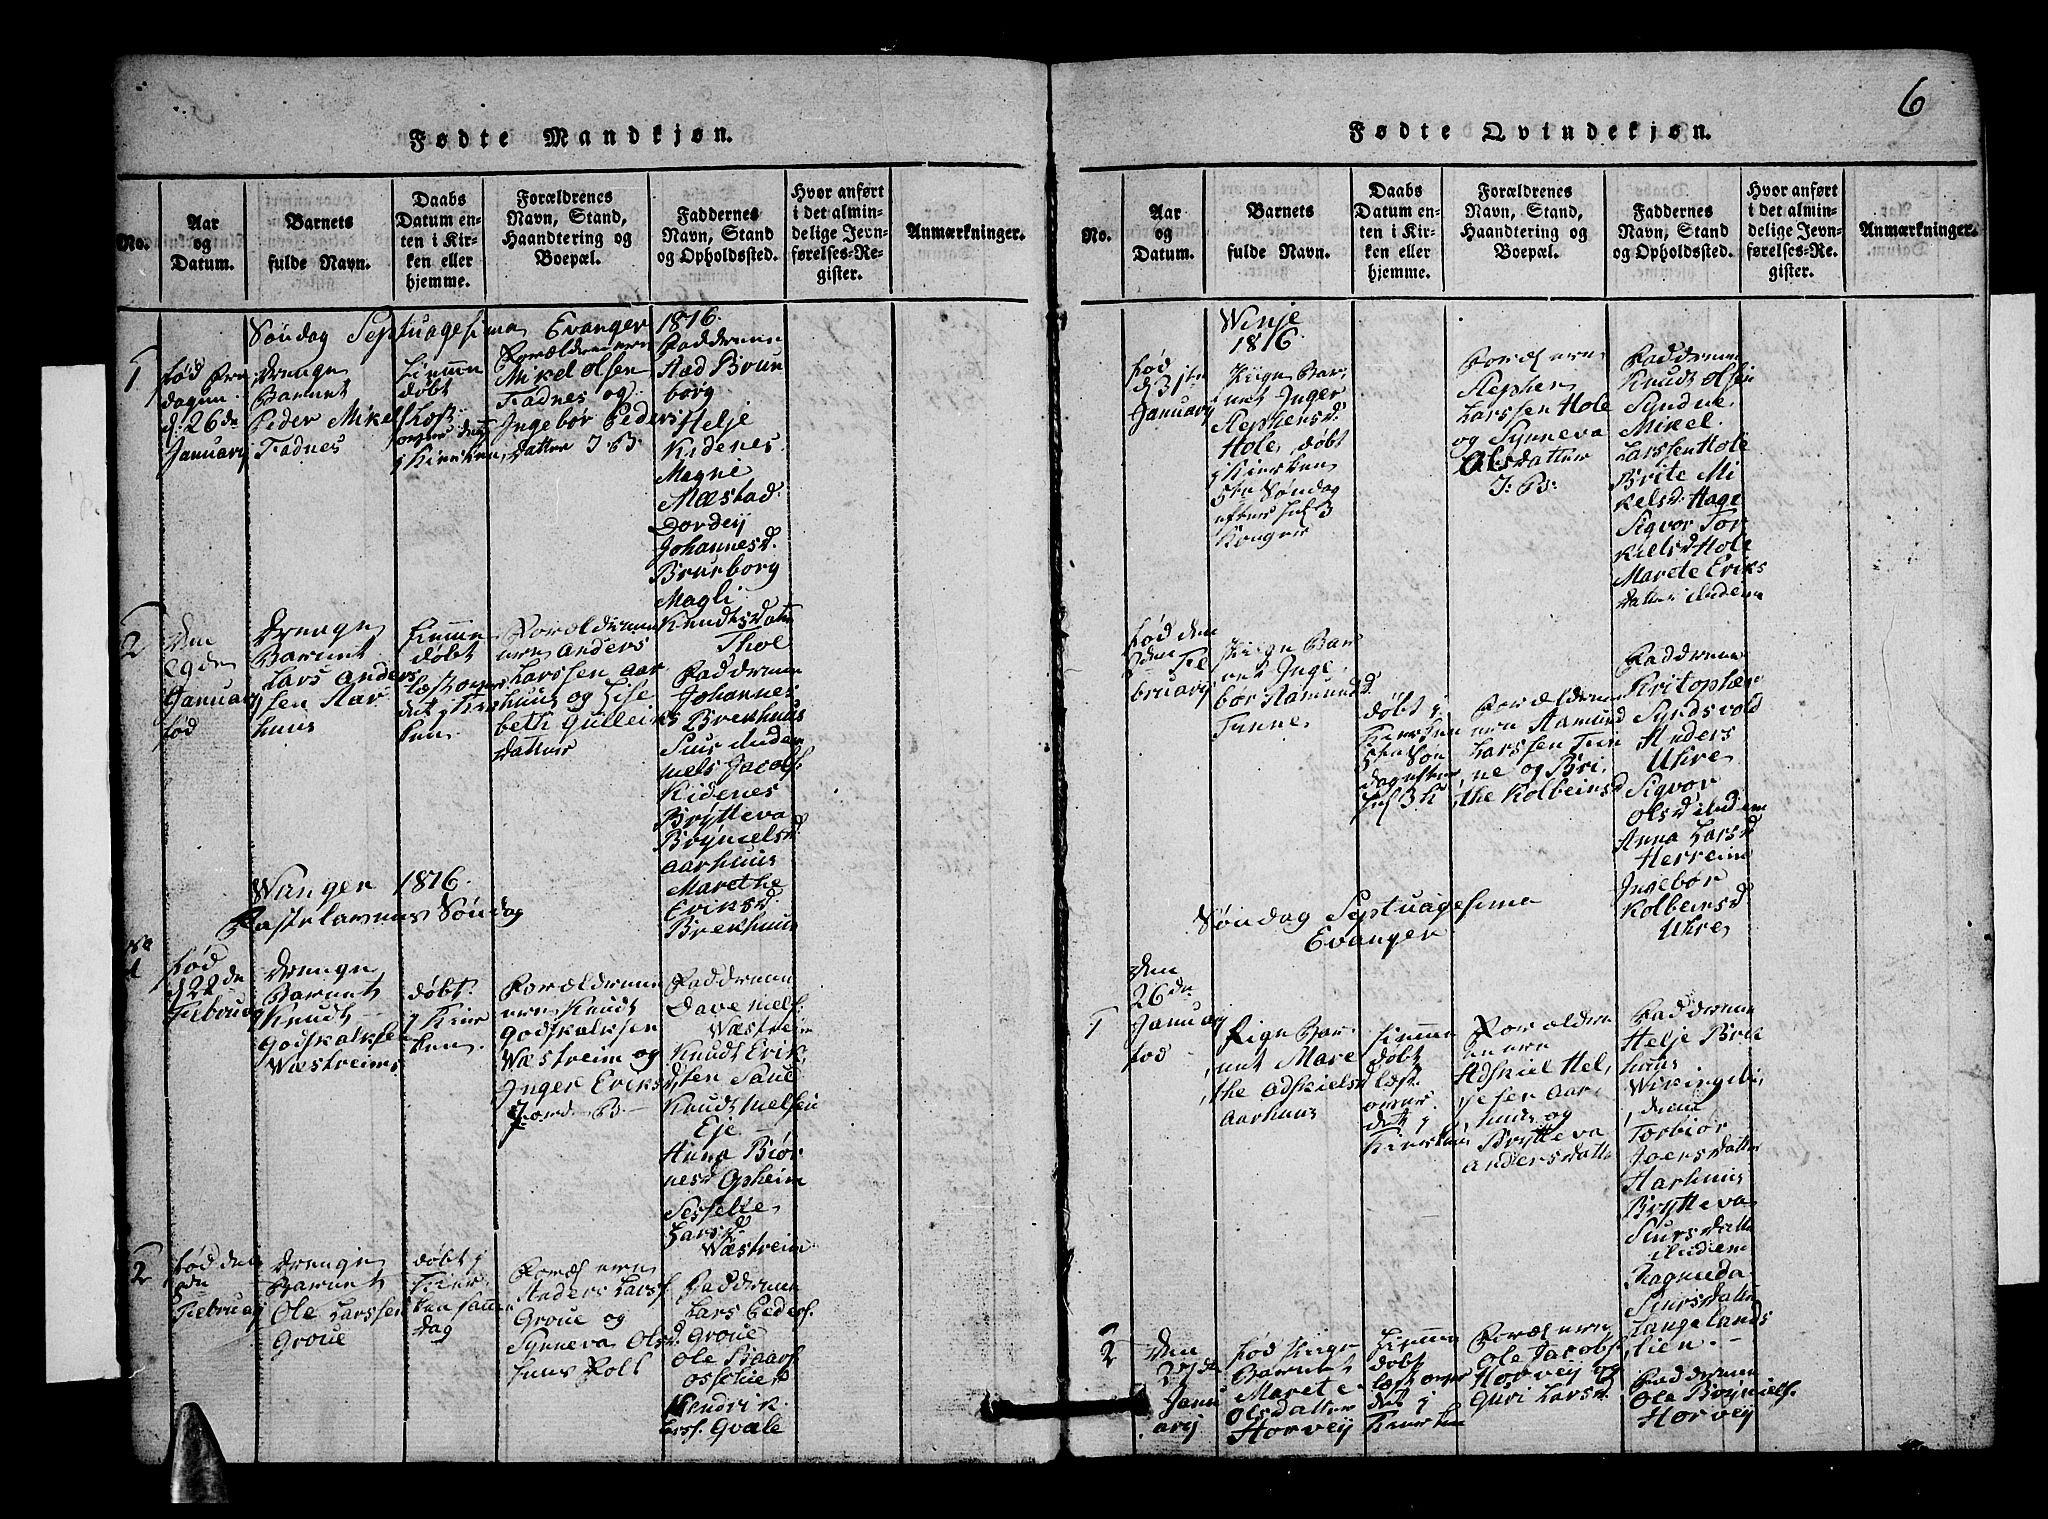 6
Fødte Mandkjøn.
No.
Aar
og
Datum.
Barnets
fulde Navn.
Daabs
Datum en-
ten i Kir-
ken eller
hjemme.
Forældrenes
Navn, Stand,
Haandtering og
Boepæl.
Faddernes
Navn, Stand
og Opholdssted.
Hvor anført
i det almin-
delige Jevn-
førelses-Re-
gister.
Anmærkninger.
Søndag Septuagesima Evanger 1816.
1
fød Fre
dagen
d. 26de
January
Drenge
Barnet
Peder Mikels
Fadnes
hiemme
døbt
læst
over det
i Kirken
Forældrene ere
Mikel Olsen
Fadnes og
Ingebør Peders
datter I B.
Fadderne
Aad Bruu
borg
Helje
Kidenes
Magne
Mæstad
Dordeij
Johannesd.
Bruuborg
Magli
Knudsdatr
Thoe
2
Den
29de
January
fød
Drenge
Barnet
Lars Anders
sen Aar
huus
hiemme
døbt
læst over
det i Kir
ken
Forældrene
ere Anders
Larssen Aar
huus og Lise
beth Gulleiks
datter
Fadderne
Johannes
Brekhuus
Siur Mudem
Niels Jacobs.
Kidenes
Brytteva
Brynielsd.
Aarhuus
Marethe
Eriksd.
Brekhuus
Wanger 1816.
Fastelavens Søndag
No
1
fød
d 22de
Februay
Drenge
Barnet
Knudt
Godskalksen
Wæstreim
døbt
i Kier
ken
Forældrene
ere Knudt
Godskalksen
Wæstreim og
Inger Eriks
Jord B
Fadderne
Dave Niels.
Wæstreim
Knudt Erik
sen Saue
Knudt Nielsen
Eje
Anna Biør
nesd Opheim
Sesselje
Larsd
Wæstreim
2
fød den
Februay
Drenge
Barnet
Ole Larssen
Groue
døbt i
Kier
ken samme
dag
Foræl ere
Anders Larss.
Groue og
Synneva Olsd.
Fadderne
Lars Peders.
Groue
Ole Baars.
Hendrik
Larss. Gvale
Fødte Qvindekjøn.
No.
Aar
og
Datum.
Barnets
fulde Navn.
Daabs
Datum en-
ten i Kir-
ken eller
hjemme.
Forældrenes
Navn, Stand,
Haandtering og
Boepæl.
Faddernes
Navn, Stand
og Opholdssted.
Hvor anført
i det almin-
delige Jevn-
førelses-Re-
gister.
Anmærkninger.
Winje
1816.
fød
d 31te
January
Piige Bar
net Inger
Stephensd.
Hole, døbt
i Kierken
5te Søndag
efter hel 3
Konger
Foræl ere
Stephen
Larssen Hole
og Synneva
Olsdatter
J. B.
Fadderne
Knudt Olsen
Syndve
Mikel
Larssen Hole
Brite Mi
kelsd. Hage
Sigvor Tor
kielsd Hole
Marete Eriks
datter Mudem
fød den
Fe
bruary
Piige Bar
net Inge
bør Aamundsd.
Finne
døbt i
Kierken
5te Søn
dag efter
hel 3 K
Forældrene
ere Aamund
Larssen Fin
ne og Bri
the Kolbeinsd
Fadderne
Kristopher
Syndsvold
Anders
Uhre
Sigvor
Olsd Mudem
Anna Larsd
Herreim
Ingebør
Kolbeinsd
Uhre
Søndag Septuagesima
Evanger
1
Den
26de
January
fød
Pige Bar
net Mare
the Adskielsd
Aarhuus
hiemme
døbt
læst
over
det i
Kierken
Forældren
e ere
Adskiel Hel
jesen Aar
huus og
Brytteva
Andersdatte
Fadderne
Helje Brek
huus
Torbiør
Joersdatter
Aarhuus
Brytteva
Siursdatte
Mudem
Ragnieda
Siursdatter
Langelands
lien.
2
Den
27de
Janu
ary
fød Piige
Barnet
Marete
Olsdatter
Horvey
hiemme
døbt
læst over
det i
Kierken
Foræl ere
Ole Jacobs.
Horvey og
Guri Larsd.
Fadderne
Ole Bryniels.
Horvey